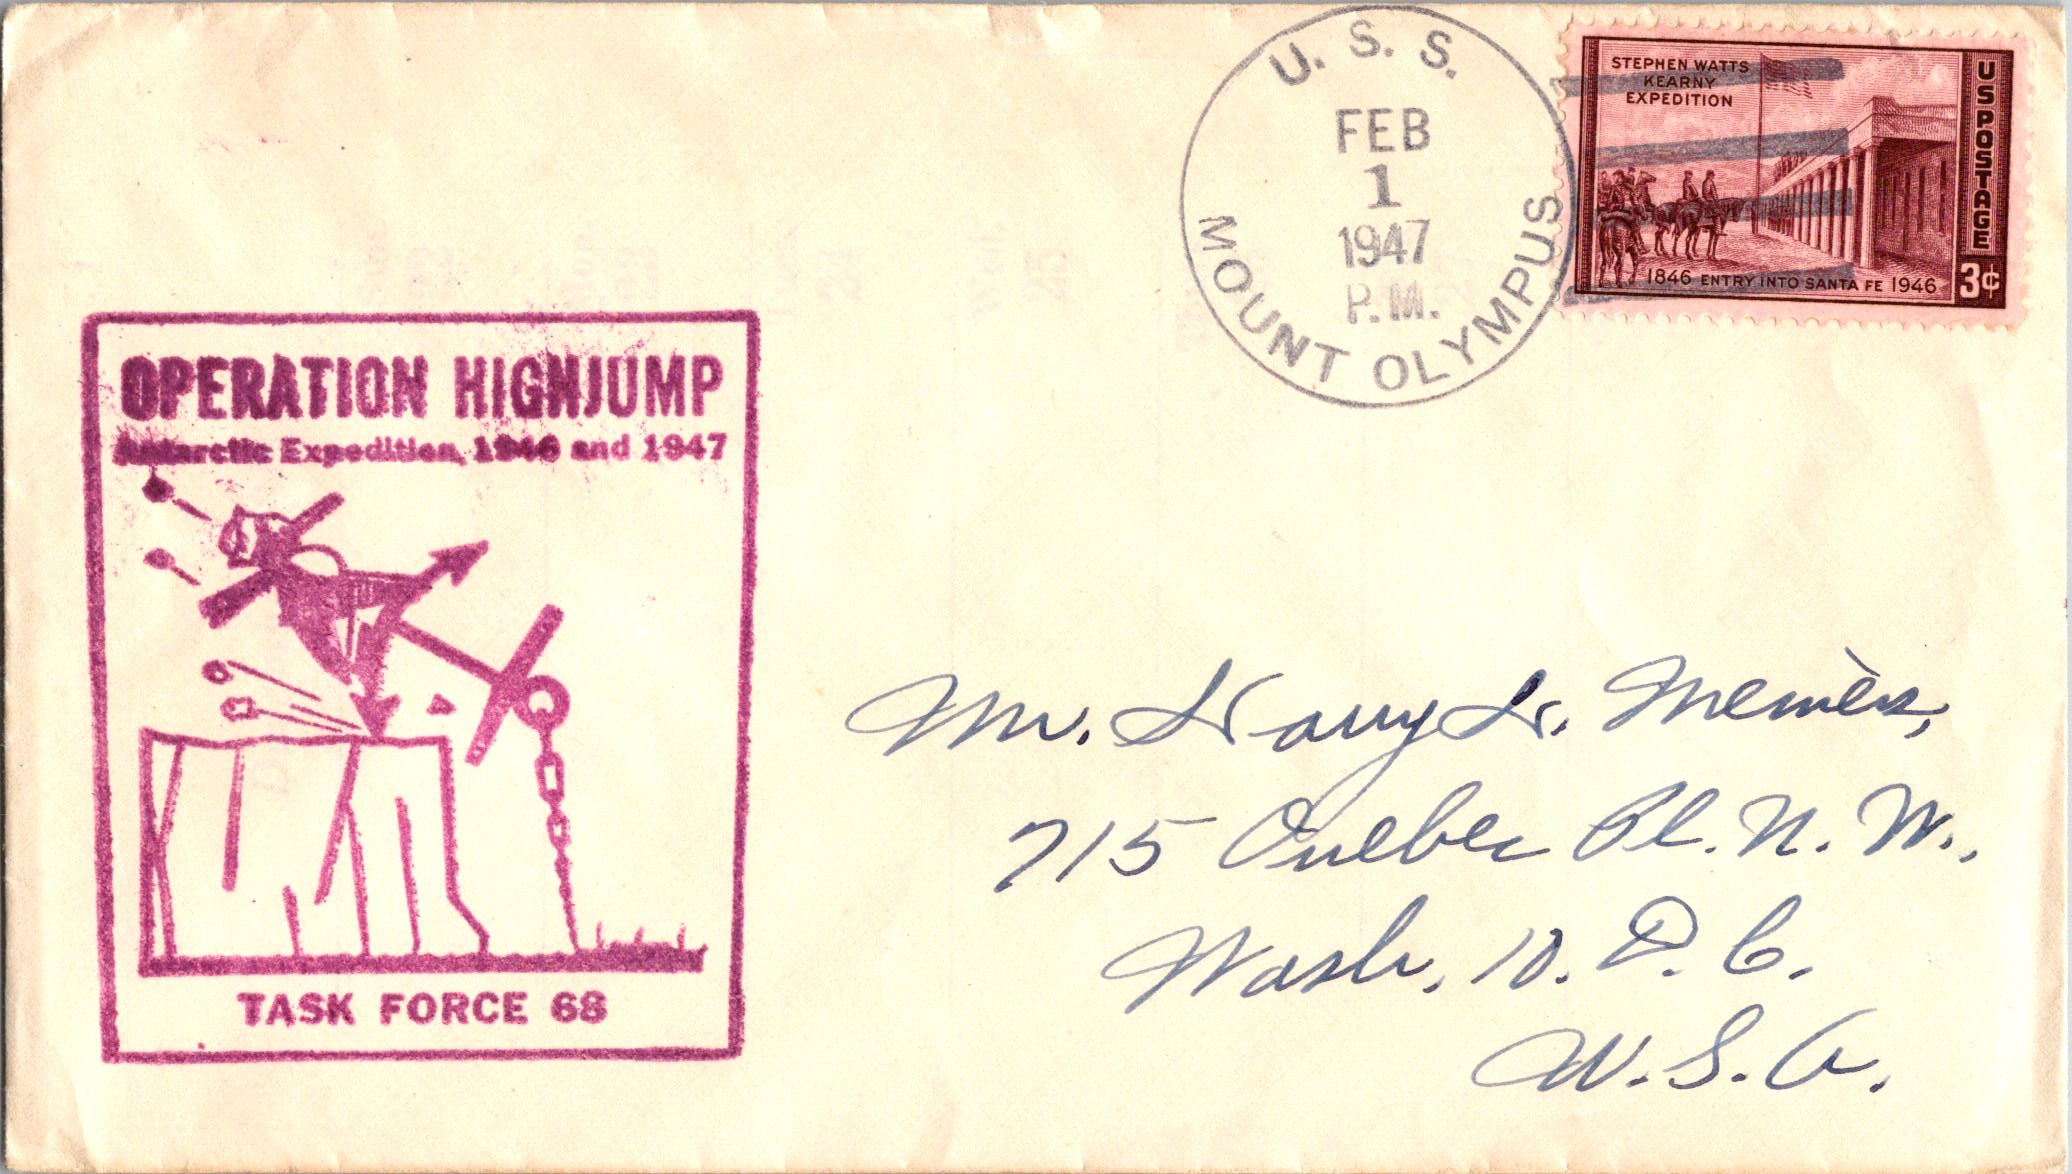 U. S. S.
FEB
1
1947
P.M.
MOUNT OLYMPUS
STEPHEN WATTS
KEARNY
EXPEDITION
US POSTAGE
1846 ENTRY INTO SANTA FE 1946
3¢
OPERATION HIGHJUMP
Antarctic Expedition, 1946 and 1947
TASK FORCE 68
Mr. Harry L.
715 Quebec Pl. N. W.,
Wash. 10. D. C.
U. S. A.